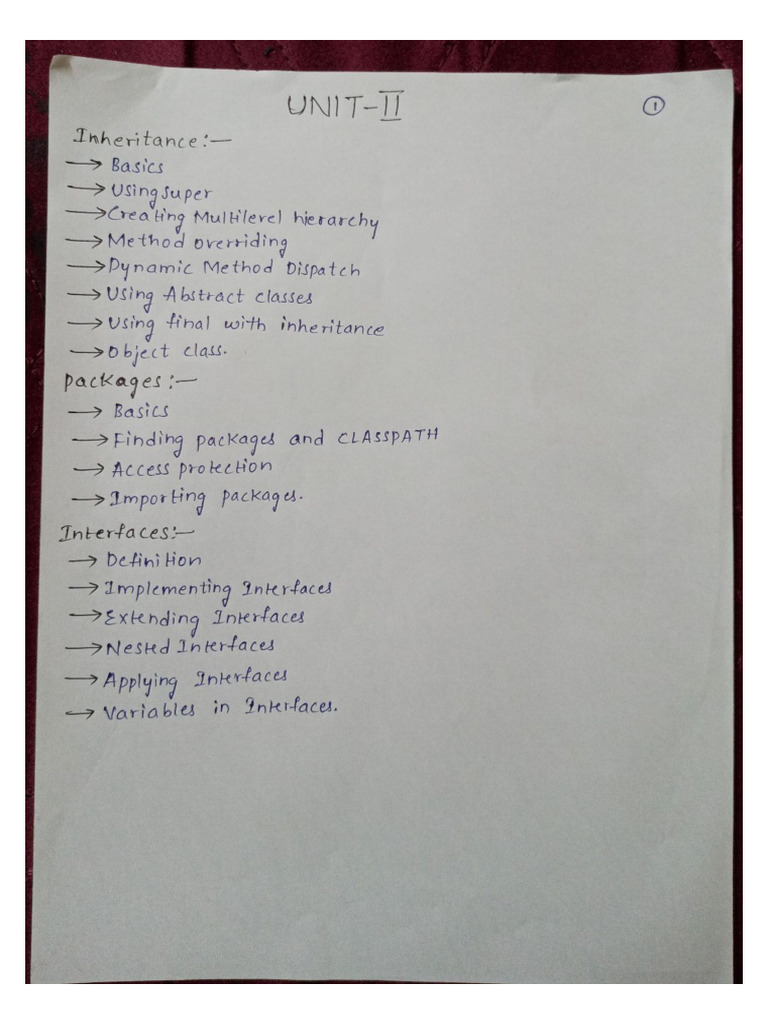 UNIT-II
①
Inheritance:-
→ Basics
→ Using super
→ Creating Multilevel hierarchy
→ Method overriding
→ Dynamic Method Dispatch
→ Using Abstract classes
→ Using final with inheritance
→ Object class.
packages:-
→ Basics
→ Finding packages and CLASSPATH
→ Access protection
→ Importing packages.
Interfaces:-
→ Definition
→ Implementing Interfaces
→ Extending Interfaces
→ Nested Interfaces
→ Applying Interfaces
→ Variables in Interfaces.